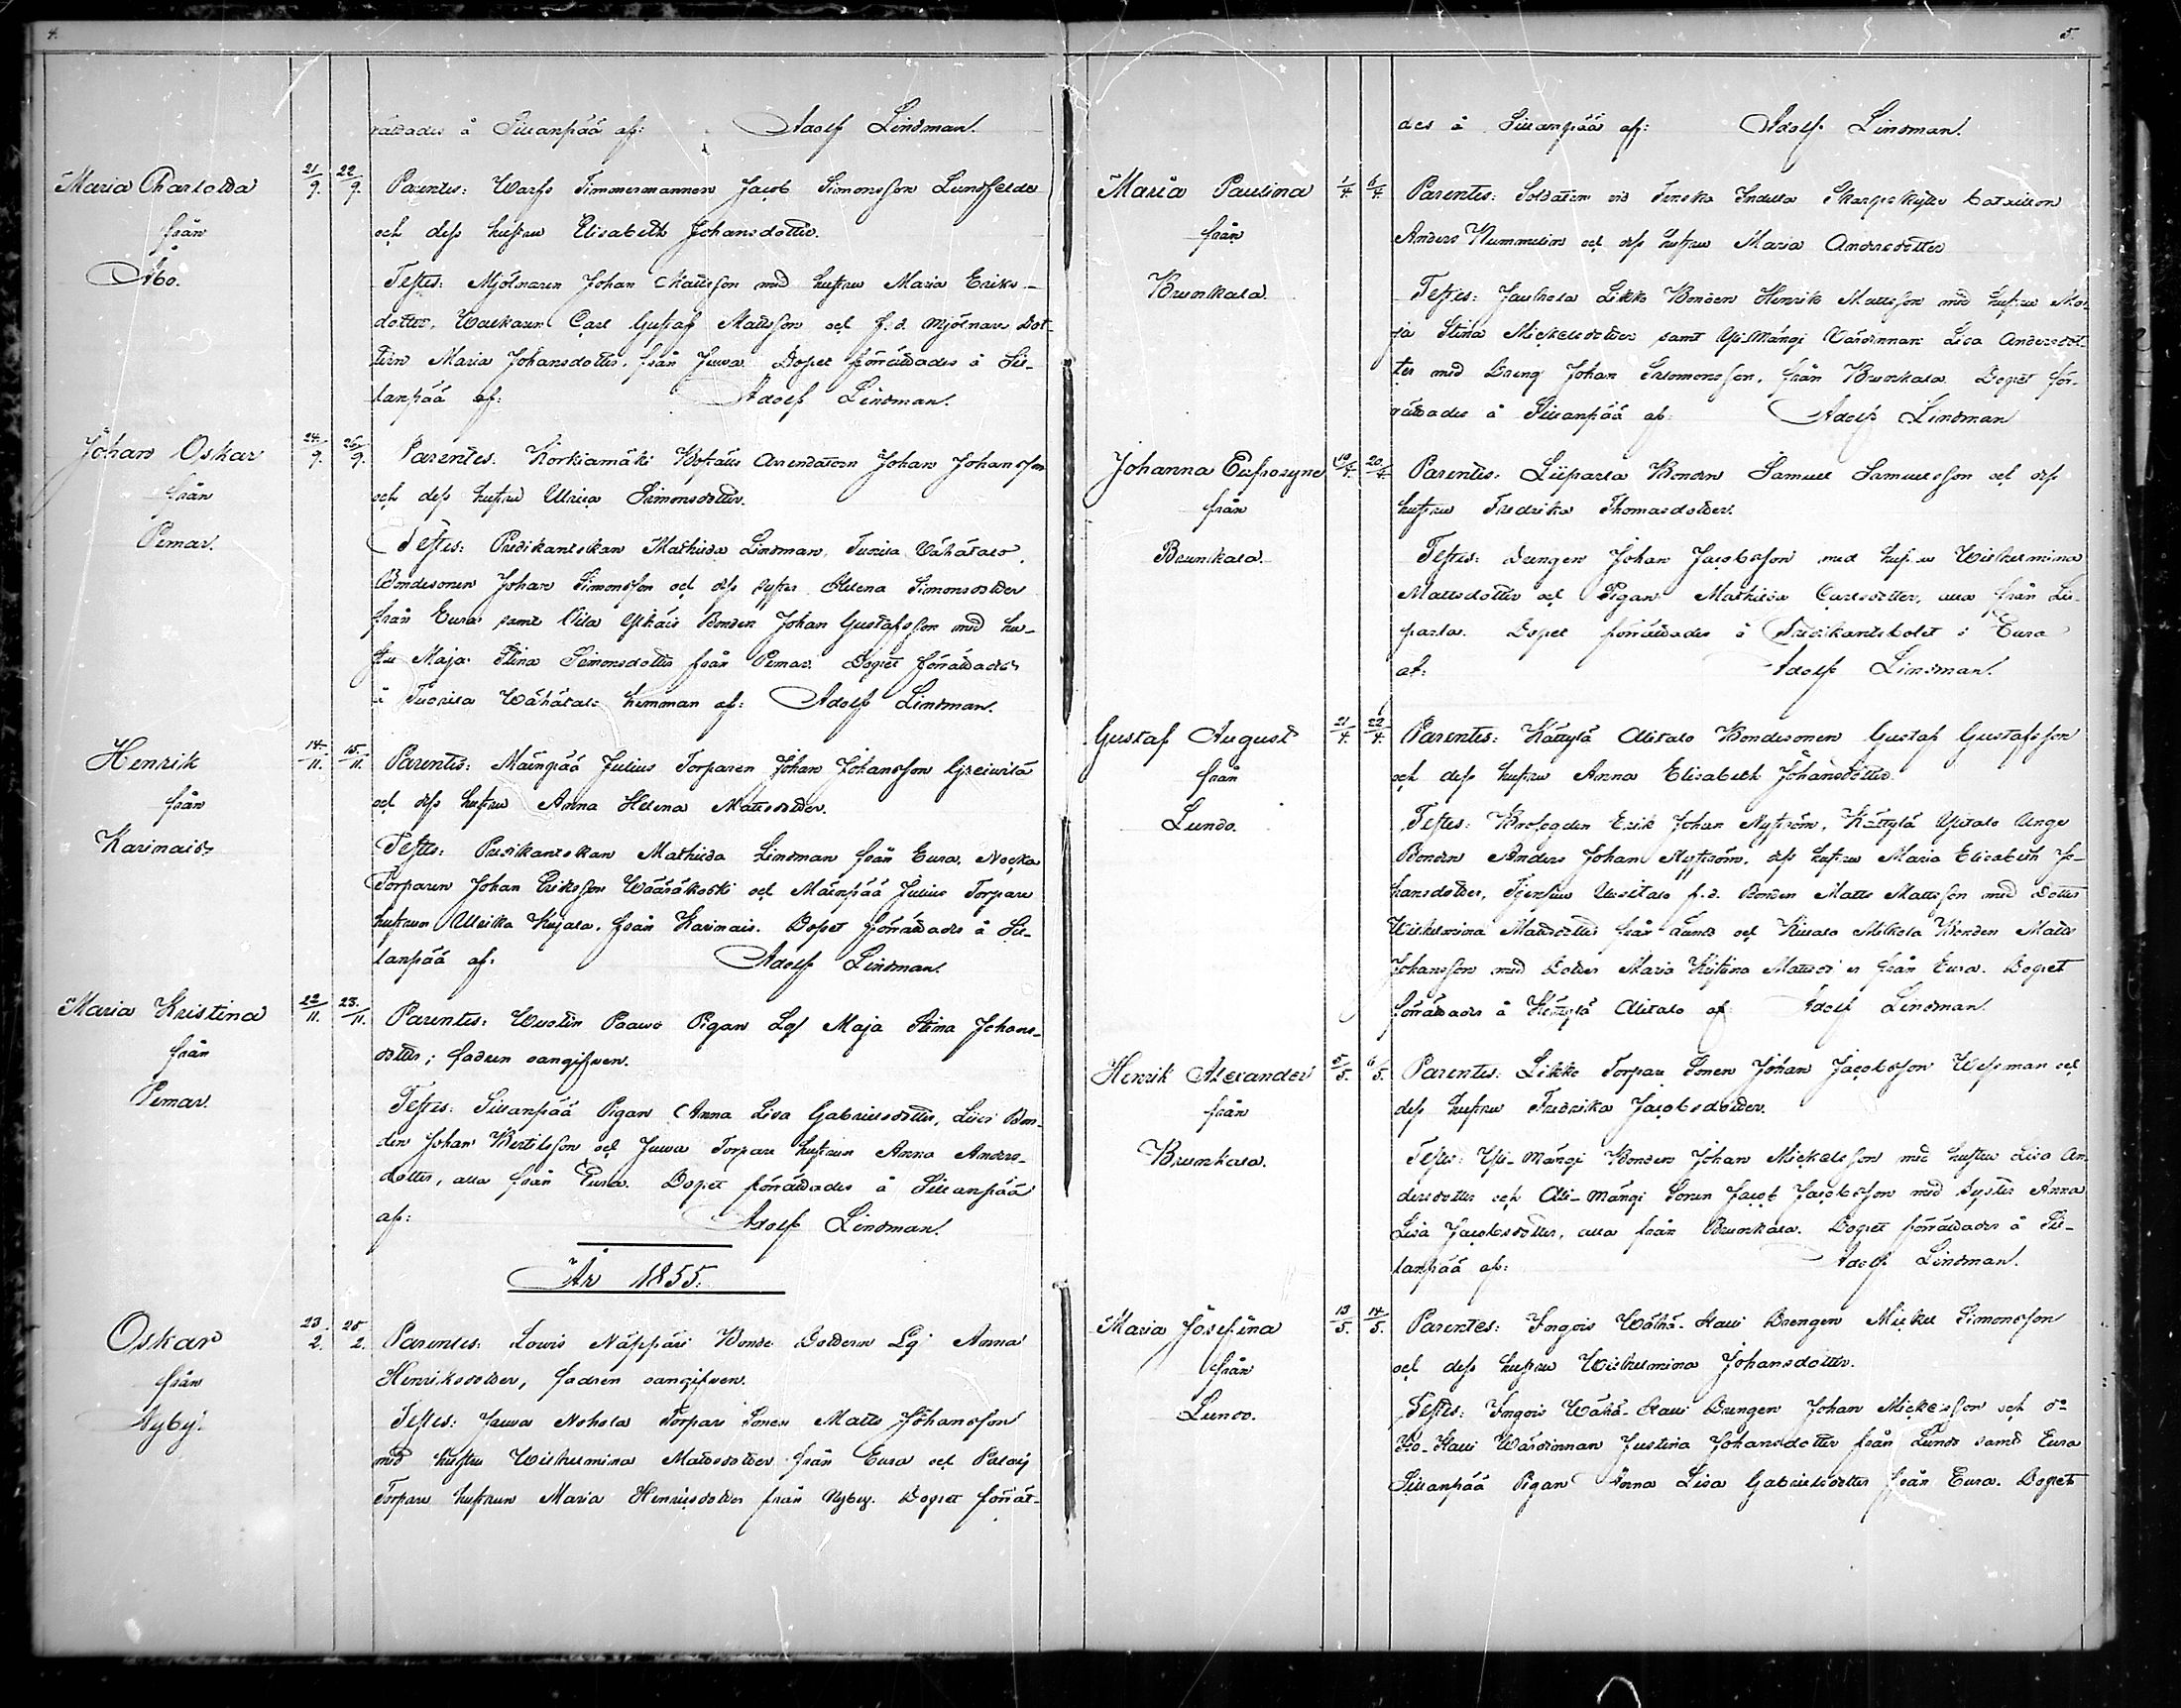 4.
rättades å Sillanpää af: Adolf Lindman.
Maria Charlotta
från
Åbo.
21/9. 22/9.
Parentes: Warfs Timmermannen Jacob Simonsson Lundfeldt
och dess hustru Elisabeth Johansdotter.
Testes: Mjölnaren Johan Mattsson med hustru Maria Eriks-
dotter, Carl Gustaf Mattsson och f.d. mjölnare Dot-
tern Maria Johansdotter, från Juva. Dopet förrättades å Sil-
lanpää af: Adolf Lindman.
Johan Oskar
från
Pemar.
24/9. 25/9.
Parentes: Korkiamäki Arrendatorn Johan Johansson
och dess hustru Ulrica Simonsdotter.
Testes: Predikantskan Mathilda Lindman, Tuorla Wähätalo
Bondesonen Johan Simonsson och dess syster Helena Simonsdotter
från Eura samt Bonden Johan Gustafsson med hu-
stru Maja Stina Simonsdotter från Pemar. Dopet förrättades
å Tuorla Wähätalo hemman af: Adolf Lindman.
Henrik
från
Karinais
14/11. 15/11.
Parentes: Mäenpää Julius Torparen Johan Johansson
och dess hustru Anna Helena Mattsdotter.
Testes: Predikantskan Mathilda Lindman från Eura,
Torparen Johan Eriksson Wääräkoski och Mäenpää Julius Torpare
hustrun Ulrika Kujala, från Karinais. Dopet förrättades å Sil-
lanpää af: Adolf Lindman.
Maria Kristina
från
Pemar.
22/11. 23/11.
Parentes: Paavo Pigan Lgf Maja Stina Johans-
dotter; fadren oangifven.
Testes: Sillanpää Pigan Anna Lisa Gabrielsdotter, Bon-
den Johan Bertilsson och Juva Torpare hustrun Anna Anders-
dotter, alla från Eura. Dopet förrättades å Sillanpää
af: Adolf Lindman.
År 1855.
Oskar
från
Nyby.
23/2. 25/2.
Parentes: Näppäri Bonde Dottern Lgf Anna
Henriksdotter, fadren oangifven.
Testes: Juva Nohola Torpare Sonen Matts Johansson
med hustru Wilhelmina Mattsdotter från Eura och
Torpare hustrun Maria Henriksdotter från Nyby. Dopet förrät-
5.
des å Sillanpää af: Adolf Lindman.
Maria Paulina
från
Brunkala.
1/4. 6/4.
Parentes: Soldaten vid Finska Indelta Skarpskytte bataillon
Anders Nummelin och dess hustru Maria Andersdotter
Testes: Likko Bonden Henrik Mattsson med hustru Ma-
ja Stina Mickelsdotter samt Yli-Mängi Wärdinnan Lisa Andersdot-
ter med Dreng Johan Salomonsson, från Brunkala. Dopet för-
rättades å Sillanpää af: Adolf Lindman
Johanna Eufrosyne
från
Brunkala.
19/4. 20/4.
Parentes: Liiparla Bonden Samuel Samuelsson och dess
hustru Fredrika Thomasdotter.
Testes: Drengen Johan Jacobsson med hustru Wilhelmina
Mattsdotter och Pigan Mathilda Carlsdotter, alla från Lii-
parla. Dopet förrättades å Predikantsbolet i Eura
af: Adolf Lindman.
Gustaf August
från
Lundo.
21/4. 22/4.
Parentes: Kättylä Alitalo Bondesonen Gustaf Gustafsson
och dess hustru Anna Elisabeth Johansdotter.
Testes: Krofogden Erik Johan Nyström, Kättylä Ylitalo Unge
Bonden Anders Johan Nyström, dess hustru Maria Elisabeth Jo-
hansdotter, Uusitalo f.d. Bonden Matts Mattsson med Dotter
Wilhelmina Mattsdotter från Lundo och Mikola Bonden Matts
Johansson med Dotter Maria Kristina Mattsdotter från Eura. Dopet
förrättades å Kättylä Alitalo af Adolf Lindman.
Henrik Alexander
från
Brunkala.
5/5. 6/5.
Parentes: Likko Torpare Sonen Johan Jacobsson Wessman och
dess hustru Fredrika Jacobsdotter.
Testes: Yli-Mängi Bonden Johan Mickelsson med hustru Lisa An-
dersdotter och Ali-Mängi Sonen Jacob Jacobsson med Syster Anna
Lisa Jacobsdotter, alla från Brunkala. Dopet förrättades å Sil-
lanpää af: Adolf Lindman.
Maria Josefina
från
Lundo.
13/5. 14/5.
Parentes: Ingois Wähä-Kaui Drengen Mickel Simonsson
och dess hustru Wilhelmina Johansdotter.
Testes: Ingois Wähä-Kaui Drengen Johan Mickelsson och do
Iso-Kaui Wärdinnan Justina Johansdotter från Lundo samt Eura
Sillanpää Pigan Anna Lisa Gabrielsdotter från Eura. Dopet